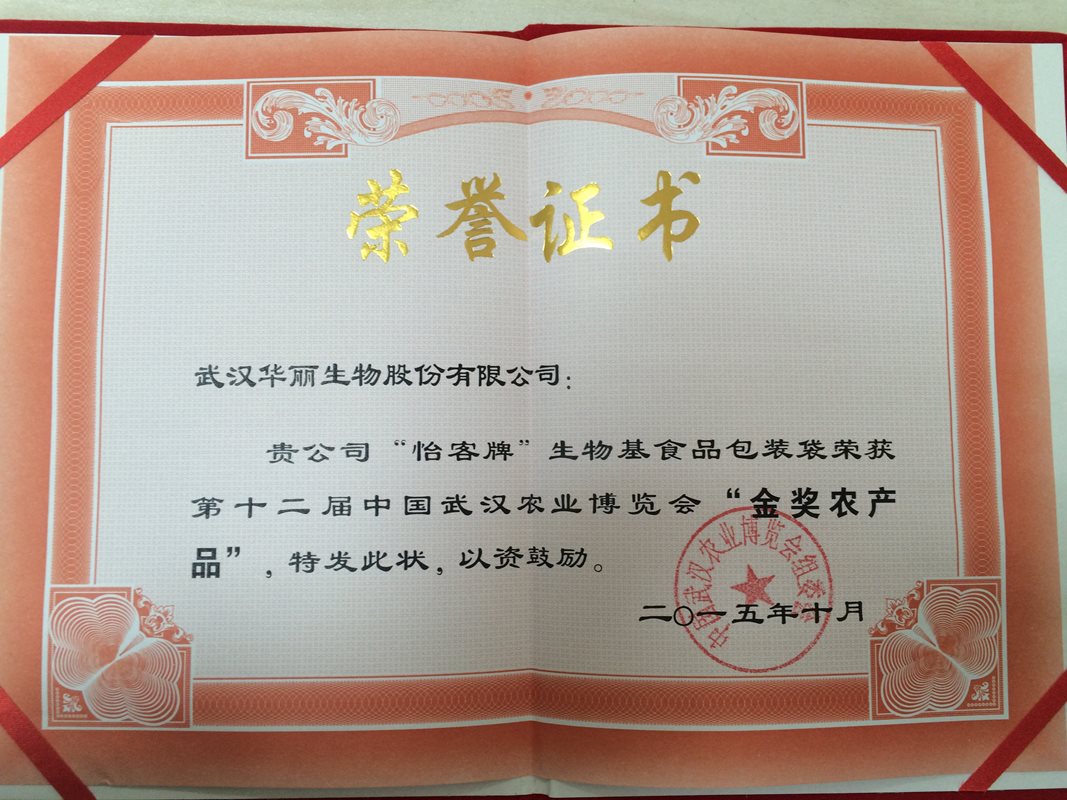 荣誉证书
武汉华丽生物股份有限公司：
贵公司“怡客牌”生物基食品包装袋荣获
第十二届中国武汉农业博览会“金奖农产
品”，特发此状，以资鼓励。
中国武汉农业博览会组委会
二〇一五年十月